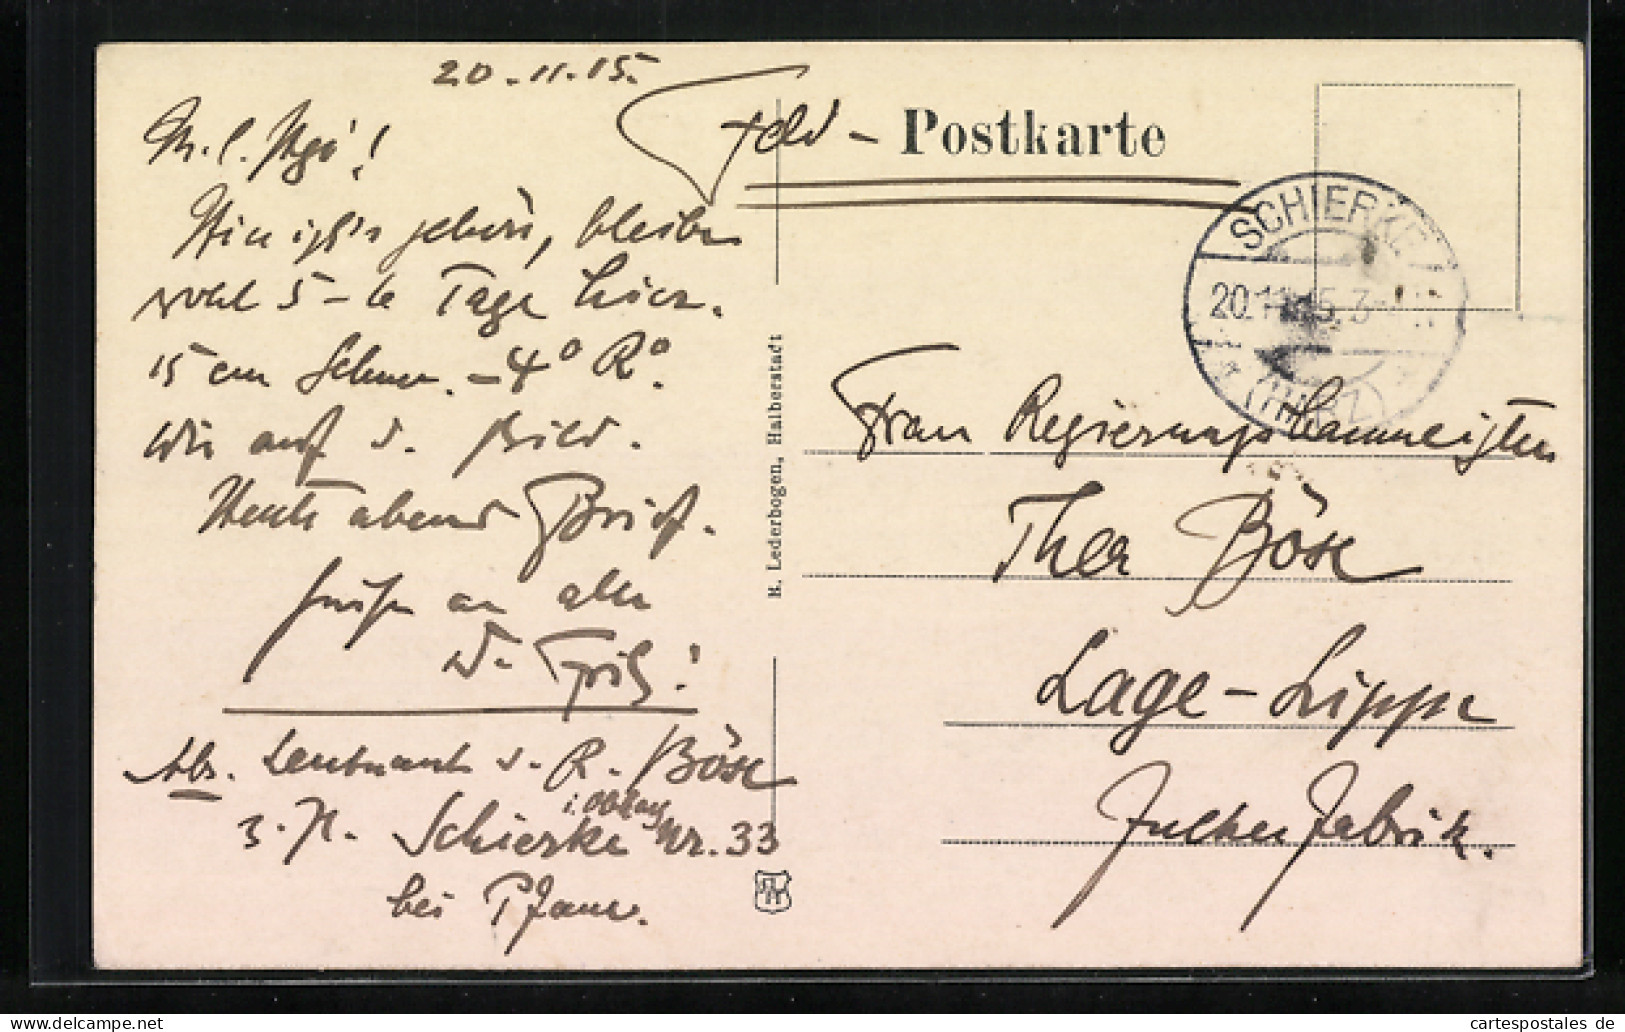 20.11.15.
Feld-Postkarte
M. l.
Hier ist's schön, bleiben
wohl 5-6 Tage hier.
15 cm Schnee. -4° R°.
Wie auf d. Bild.
Heute abend Brief.
Grüße an alle
D.
Abs. Leutnant d. R. Böse
z. Zt. Schierke i. Harz Nr. 33
bei
H. Lederbogen, Halberstadt
SCHIERKE
20.11.15.3-
(HARZ)
Frau Regierungsbaumeister
Thea Böse
Lage-Lippe
Zuckerfabrik.
cartespostales de